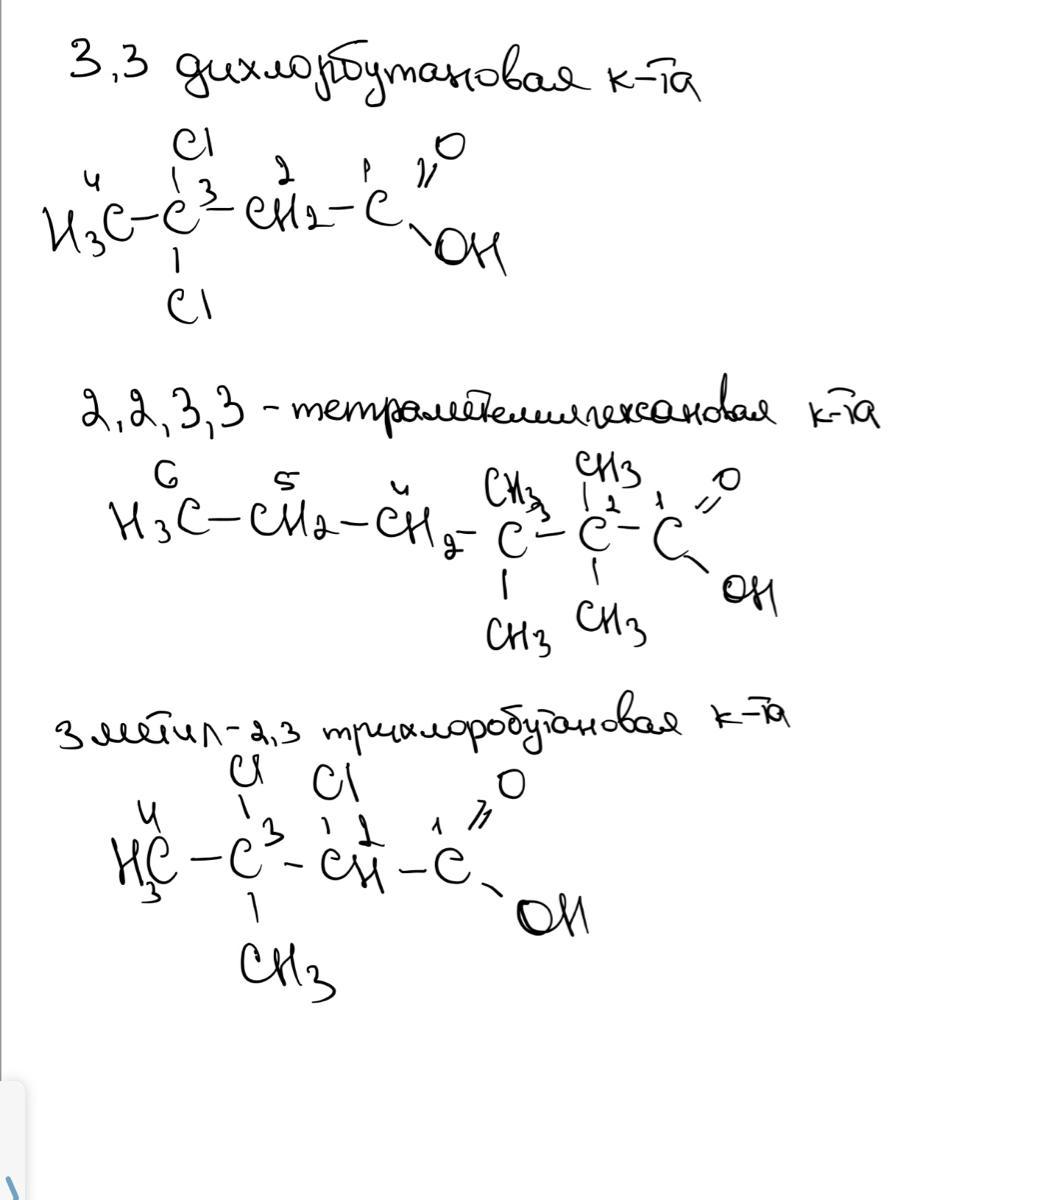 3,3 дихлорбутановая к-та
Cl
4 3 2 1 O
H3C-C-CH2-C
OH
Cl
2,2,3,3-тетраметилгексановая к-та
6 5 4 CH3 CH3 O
H3C-CH2-CH2-C3-C2-C1
OH
CH3 CH3
3 метил-2,3 трихлоробутановая к-та
Cl Cl O
4 3 2 1
H3C-C-CH-C
OH
CH3